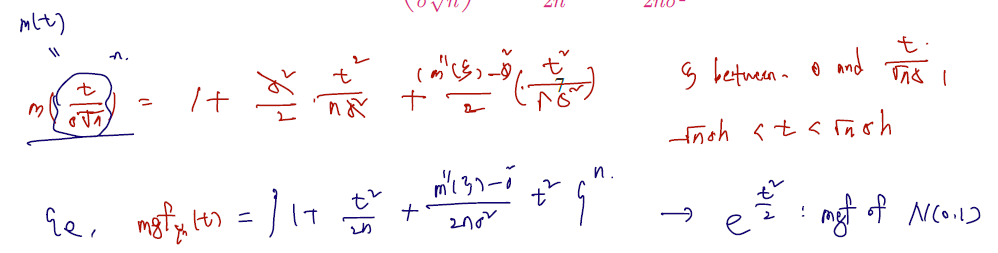 (σ√n) 2n 2nσ
m(t)
" n.
m(t/(σ√n)) = 1 + σ²/2 · t²/(nσ²) + (m''(ξ)-σ²)/2 (t²/(nσ²)) ξ between 0 and t/(√nσ),
-√nσh < t < √nσh
i.e., mgf (t) = { 1 + t²/2n + (m''(ξ)-σ²)/(2nσ²) t² }ⁿ. → e^(t²/2) : mgf of N(0,1)